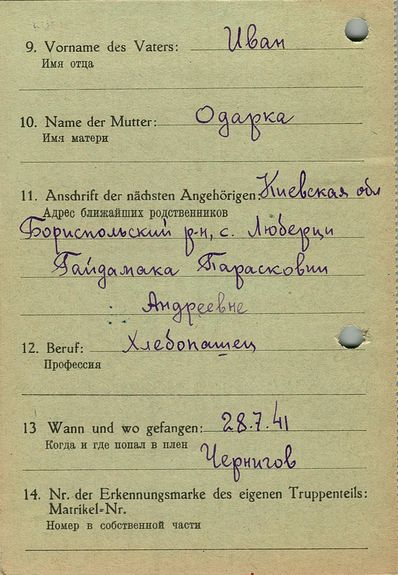 9. Vorname des Vaters: Иван
Имя отца
10. Name der Mutter: Одарка
Имя матери
11. Anschrift der nächsten Angehörigen: Киевская обл
Адрес ближайших родственников
Бориспольский р-н, с. Люберци
Гайдамака Парасковии
Андреевне
12. Beruf: Хлебопашец
Профессия
13 Wann und wo gefangen: 28.7.41
Когда и где попал в плен
Чернигов
14. Nr. der Erkennungsmarke des eigenen Truppenteils:
Matrikel-Nr.
Номер в собственной части